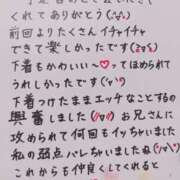 くれてありがとう(;´ω`)
前回よりたくさんイチャイチャ
できて楽しかったです(≧▽≦)
下着もかわいい〜♡ってほめられて
うれしかったです(*´▽`*)
下着つけたままエッチなことするの
興奮しました(//∇//)お兄さんに
攻められて何回もイッちゃいました
私の弱点バレちゃいましたね(*ノωノ)
これからも仲良くしてくれると